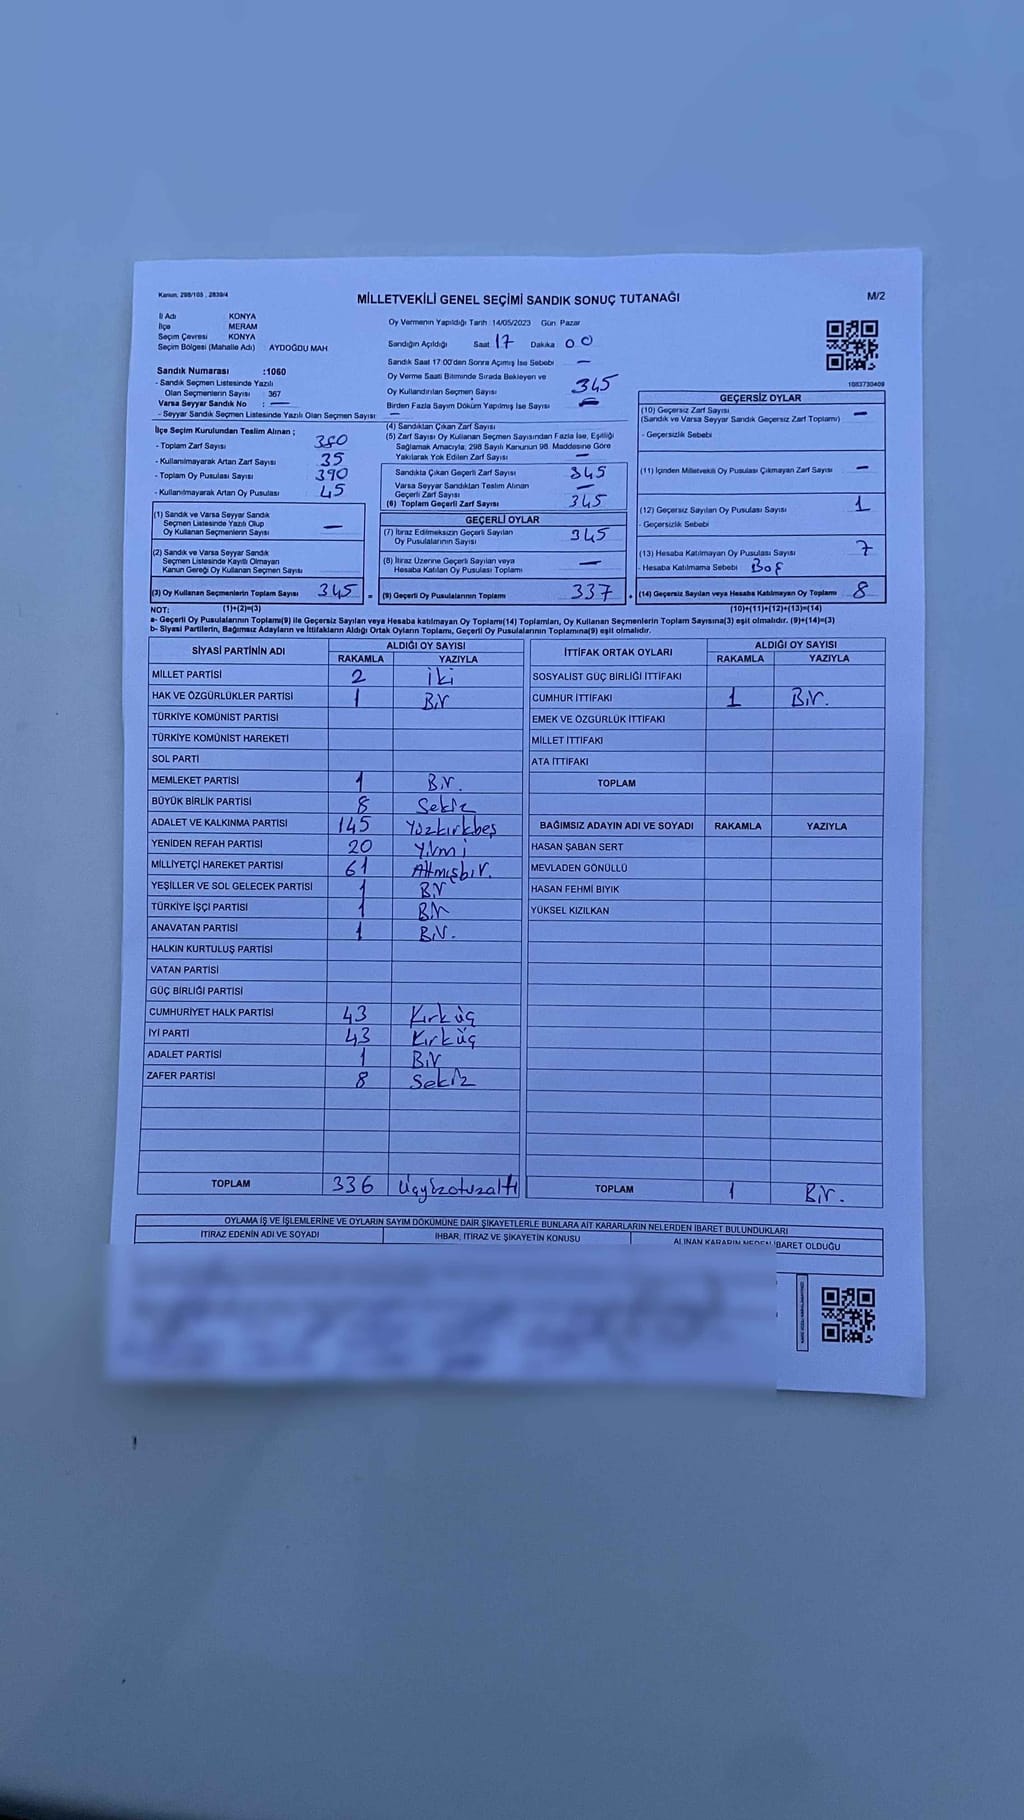 Kanun: 298/105 , 2839/4
MİLLETVEKİLİ GENEL SEÇİMİ SANDIK SONUÇ TUTANAĞI
M/2
İl Adı KONYA
İlçe MERAM
Seçim Çevresi KONYA
Seçim Bölgesi (Mahalle Adı) AYDOĞDU MAH
Sandık Numarası :1060
- Sandık Seçmen Listesinde Yazılı
Olan Seçmenlerin Sayısı : 367
Varsa Seyyar Sandık No : —
- Seyyar Sandık Seçmen Listesinde Yazılı Olan Seçmen Sayısı: —
İlçe Seçim Kurulundan Teslim Alınan ;
- Toplam Zarf Sayısı 380
- Kullanılmayarak Artan Zarf Sayısı 35
- Toplam Oy Pusulası Sayısı 390
- Kullanılmayarak Artan Oy Pusulası 45
(1) Sandık ve Varsa Seyyar Sandık
Seçmen Listesinde Yazılı Olup
Oy Kullanan Seçmenlerin Sayısı —
(2) Sandık ve Varsa Seyyar Sandık
Seçmen Listesinde Kayıtlı Olmayan
Kanun Gereği Oy Kullanan Seçmen Sayısı
(3) Oy Kullanan Seçmenlerin Toplam Sayısı 345
Oy Vermenin Yapıldığı Tarih :14/05/2023 Gün: Pazar
Sandığın Açıldığı Saat 17 Dakika 00
Sandık Saat 17:00'den Sonra Açımış İse Sebebi —
Oy Verme Saati Bitiminde Sırada Bekleyen ve
Oy Kullandırılan Seçmen Sayısı 345
Birden Fazla Sayım Döküm Yapılmış İse Sayısı —
(4) Sandıktan Çıkan Zarf Sayısı
(5) Zarf Sayısı Oy Kullanan Seçmen Sayısından Fazla İse, Eşitliği
Sağlamak Amacıyla; 298 Sayılı Kanunun 98. Maddesine Göre
Yakılarak Yok Edilen Zarf Sayısı —
Sandıkta Çıkan Geçerli Zarf Sayısı 345
Varsa Seyyar Sandıktan Teslim Alınan
Geçerli Zarf Sayısı —
(6) Toplam Geçerli Zarf Sayısı 345
GEÇERLİ OYLAR
(7) İtiraz Edilmeksizin Geçerli Sayılan
Oy Pusulalarının Sayısı 345
(8) İtiraz Üzerine Geçerli Sayılan veya
Hesaba Katılan Oy Pusulası Toplamı —
(9) Geçerli Oy Pusulalarının Toplamı 337
1083730409
GEÇERSİZ OYLAR
(10) Geçersiz Zarf Sayısı
(Sandık ve Varsa Seyyar Sandık Geçersiz Zarf Toplamı) —
- Geçersizlik Sebebi
(11) İçinden Milletvekili Oy Pusulası Çıkmayan Zarf Sayısı —
(12) Geçersiz Sayılan Oy Pusulası Sayısı 1
- Geçersizlik Sebebi
(13) Hesaba Katılmayan Oy Pusulası Sayısı 7
- Hesaba Katılmama Sebebi Boş
(14) Geçersiz Sayılan veya Hesaba Katılmayan Oy Toplamı 8
NOT: (1)+(2)=(3) (10)+(11)+(12)+(13)=(14)
a- Geçerli Oy Pusulasının Toplamı(9) ile Geçersiz Sayılan veya Hesaba katılmayan Oy Toplamı(14) Toplamları, Oy Kullanan Seçmenlerin Toplam Sayısına(3) eşit olmalıdır. (9)+(14)=(3)
b- Siyasi Partilerin, Bağımsız Adayların ve İttifakların Aldığı Ortak Oyların Toplamı, Geçerli Oy Pusulalarının Toplamına(9) eşit olmalıdır.
SİYASİ PARTİNİN ADI ALDIĞI OY SAYISI
RAKAMLA YAZIYLA
MİLLET PARTİSİ 2 İki
HAK VE ÖZGÜRLÜKLER PARTİSİ 1 Bir
TÜRKİYE KOMÜNİST PARTİSİ
TÜRKİYE KOMÜNİST HAREKETİ
SOL PARTİ
MEMLEKET PARTİSİ 1 Bir.
BÜYÜK BİRLİK PARTİSİ 8 Sekiz
ADALET VE KALKINMA PARTİSİ 145 Yüzkırkbeş
YENİDEN REFAH PARTİSİ 20 Yirmi
MİLLİYETÇİ HAREKET PARTİSİ 61 Altmışbir.
YEŞİLLER VE SOL GELECEK PARTİSİ 1 Bir
TÜRKİYE İŞÇİ PARTİSİ 1 Bir
ANAVATAN PARTİSİ 1 Bir.
HALKIN KURTULUŞ PARTİSİ
VATAN PARTİSİ
GÜÇ BİRLİĞİ PARTİSİ
CUMHURİYET HALK PARTİSİ 43 Kırküç
İYİ PARTİ 43 Kırküç
ADALET PARTİSİ 1 Bir
ZAFER PARTİSİ 8 Sekiz
TOPLAM 336 Üçyüzotuzaltı
İTTİFAK ORTAK OYLARI ALDIĞI OY SAYISI
RAKAMLA YAZIYLA
SOSYALİST GÜÇ BİRLİĞİ İTTİFAKI
CUMHUR İTTİFAKI 1 Bir.
EMEK VE ÖZGÜRLÜK İTTİFAKI
MİLLET İTTİFAKI
ATA İTTİFAKI
TOPLAM
BAĞIMSIZ ADAYIN ADI VE SOYADI RAKAMLA YAZIYLA
HASAN ŞABAN SERT
MEVLADEN GÖNÜLLÜ
HASAN FEHMİ BIYIK
YÜKSEL KIZILKAN
TOPLAM 1 Bir.
OYLAMA İŞ VE İŞLEMLERİNE VE OYLARIN SAYIM DÖKÜMÜNE DAİR ŞİKAYETLERLE BUNLARA AİT KARARLARIN NELERDEN İBARET BULUNDUKLARI
İTİRAZ EDENİN ADI VE SOYADI İHBAR, İTİRAZ VE ŞİKAYETİN KONUSU ALINAN KARARIN NEDEN İBARET OLDUĞU